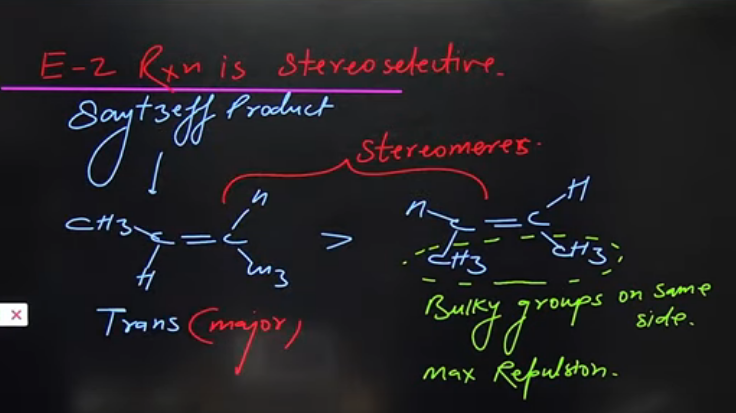 E-2 Rxn is stereoselective.
Saytzeff Product
stereomeres.
CH3 C = C H
H CH3
>
H C = C H
CH3 CH3
Trans (major)
Bulky groups on same
side.
max Repulsion.